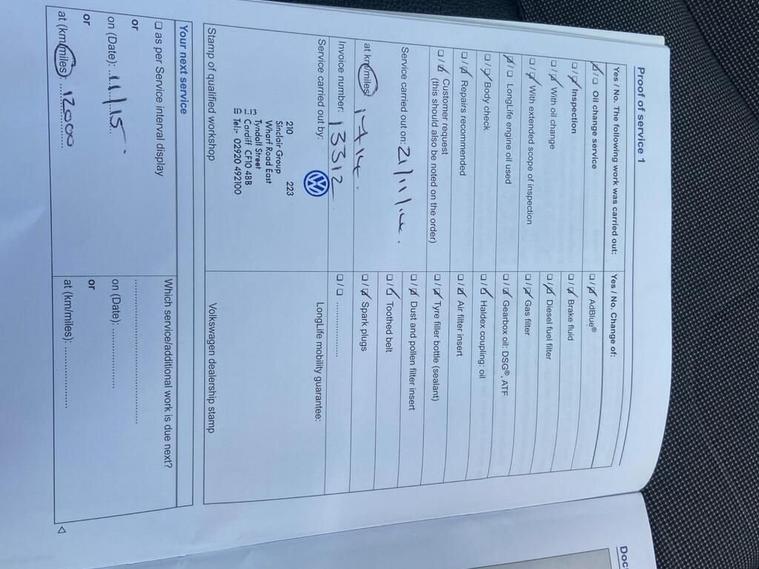 Proof of service 1
Yes / No. The following work was carried out:
☑/☐ Oil change service
☐/☑ Inspection
☐/☑ With oil change
☐/☑ With extended scope of inspection
☑/☐ LongLife engine oil used
☐/☑ Body check
☐/☑ Repairs recommended
☐/☑ Customer request
(this should also be noted on the order)
Service carried out on: 21/11/14.
at km/miles)
Invoice number: 13312
Service carried out by:
210 223
Sinclair Group
Wharf Road East
Tyndall Street
Cardiff CF10 4BB
Tel:- 02920 492100
Stamp of qualified workshop
Yes / No. Change of:
☐/☑ AdBlue®
☐/☑ Brake fluid
☐/☑ Diesel fuel filter
☐/☑ Gas filter
☐/☑ Gearbox oil: DSG®, ATF
☐/☑ Haldex coupling: oil
☐/☑ Air filter insert
☐/☑ Tyre filler bottle (sealant)
☐/☑ Dust and pollen filter insert
☐/☑ Toothed belt
☐/☑ Spark plugs
☐/☐ ................
LongLife mobility guarantee:
Volkswagen dealership stamp
Your next service
☐ as per Service interval display
or
on (Date): 11/15
or
at (km/miles) 12000
Which service/additional work is due next?
on (Date): ................
or
at (km/miles): ................
Doc